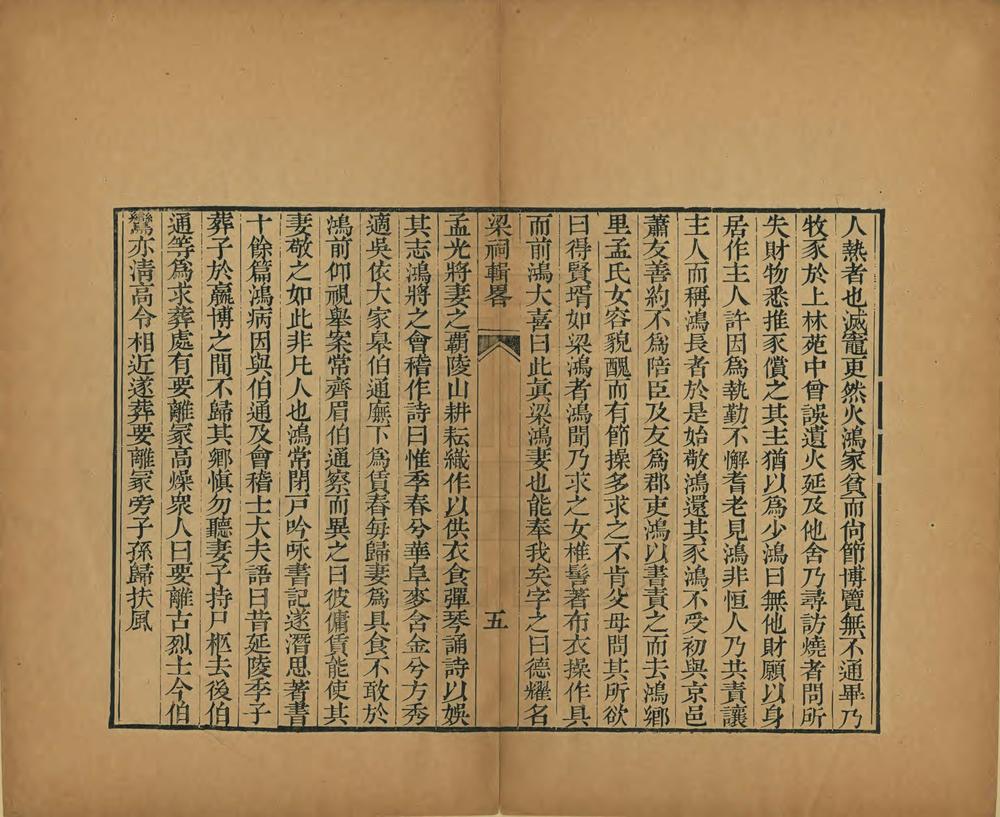 人熱者也滅竈更然火鴻家貧而尙節博覽無不通畢乃
牧豕於上林苑中曾誤遺火延及他舍乃尋訪燒者問所
失財物悉推豕償之其主猶以爲少鴻曰無他財願以身
居作主人許因爲執勤不懈耆老見鴻非恒人乃共責讓
主人而稱鴻長者於是始敬鴻還其豕鴻不受初與京邑
蕭友善約不爲陪臣及友爲郡吏鴻以書責之而去鴻鄉
里孟氏女容貌醜而有節操多求之不肯父母問其所欲
曰得賢壻如梁鴻者鴻聞乃求之女椎髻著布衣操作具
而前鴻大喜曰此眞梁鴻妻也能奉我矣字之曰德耀名
梁祠輯畧
五
孟光將妻之覇陵山耕耘織作以供衣食彈琴誦詩以娛
其志鴻將之會稽作詩曰惟季春兮華阜麥含金兮方秀
適吳依大家臯伯通廡下爲賃舂每歸妻爲具食不敢於
鴻前仰視舉案常齊眉伯通察而異之曰彼傭賃能使其
妻敬之如此非凡人也鴻常閉戸吟咏書記遂潛思著書
十餘篇鴻病因與伯通及會稽士大夫語曰昔延陵季子
葬子於嬴博之間不歸其鄉愼勿聽妻子持尸柩去後伯
通等爲求葬處有要離冢高燥衆人曰要離古烈士今伯
鸞亦淸高令相近遂葬要離冢旁子孫歸扶風